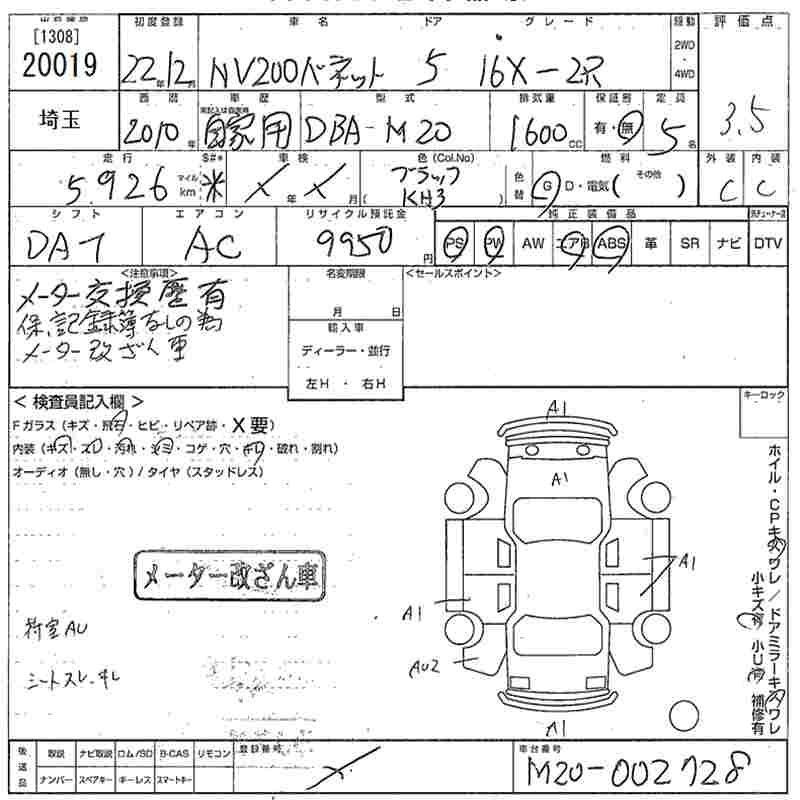 [1308]
20019
埼玉
初度登録 車名 ドア グレード 駆動 評価点
22年12月 NV200バネット 5 16X-2R 2WD・4WD
西暦 車歴 型式 排気量 保証書 定員
2010年 自家用 DBA-M20 1600cc 有・無 5名 3.5
走行 S#* 車検 色(Col.No) 色替 燃料 外装 内装
5,926 マイル km * X年X月 ブラック KH3 G D・電気( その他 ) C C
シフト エアコン リサイクル預託金 純正装備品
DAT AC 9950円 PS PW AW エアB ABS 革 SR ナビ DTV
<注意事項> 名変期限 <セールスポイント>
メーター交換歴有
保、記録簿なしの為
メーター改ざん車
月 日
輸入車
ディーラー・並行
左H・右H
<検査員記入欄> キーロック
Fガラス(キズ・飛石・ヒビ・リペア跡・X要)
内装(キズ・スレ・汚れ・シミ・コゲ・穴・キレ・破れ・割れ)
オーディオ(無し・穴)/タイヤ(スタッドレス)
メーター改ざん車
荷室AU
シートスレ・キレ
A1
A1
A1
A1
AU2
A1
ホイル・CPキズワレ/ドアミラーキズワレ
小キズ有 小U有 補修有
後送品 取説 ナビ取説 ロム/SD B-CAS リモコン 登録番号 車台番号
ナンバー スペアキー キーレス スマートキー X M20-002728